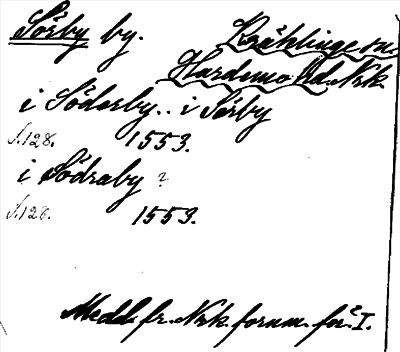 Sörby by. Kräklinge sn.
Hardemo hd. Nrk.
i Söderby.. i Sörby
s. 128. 1553.
i Södraby ?
s. 128. 1553.
Medd. fr. Nrk. forum. för. I.